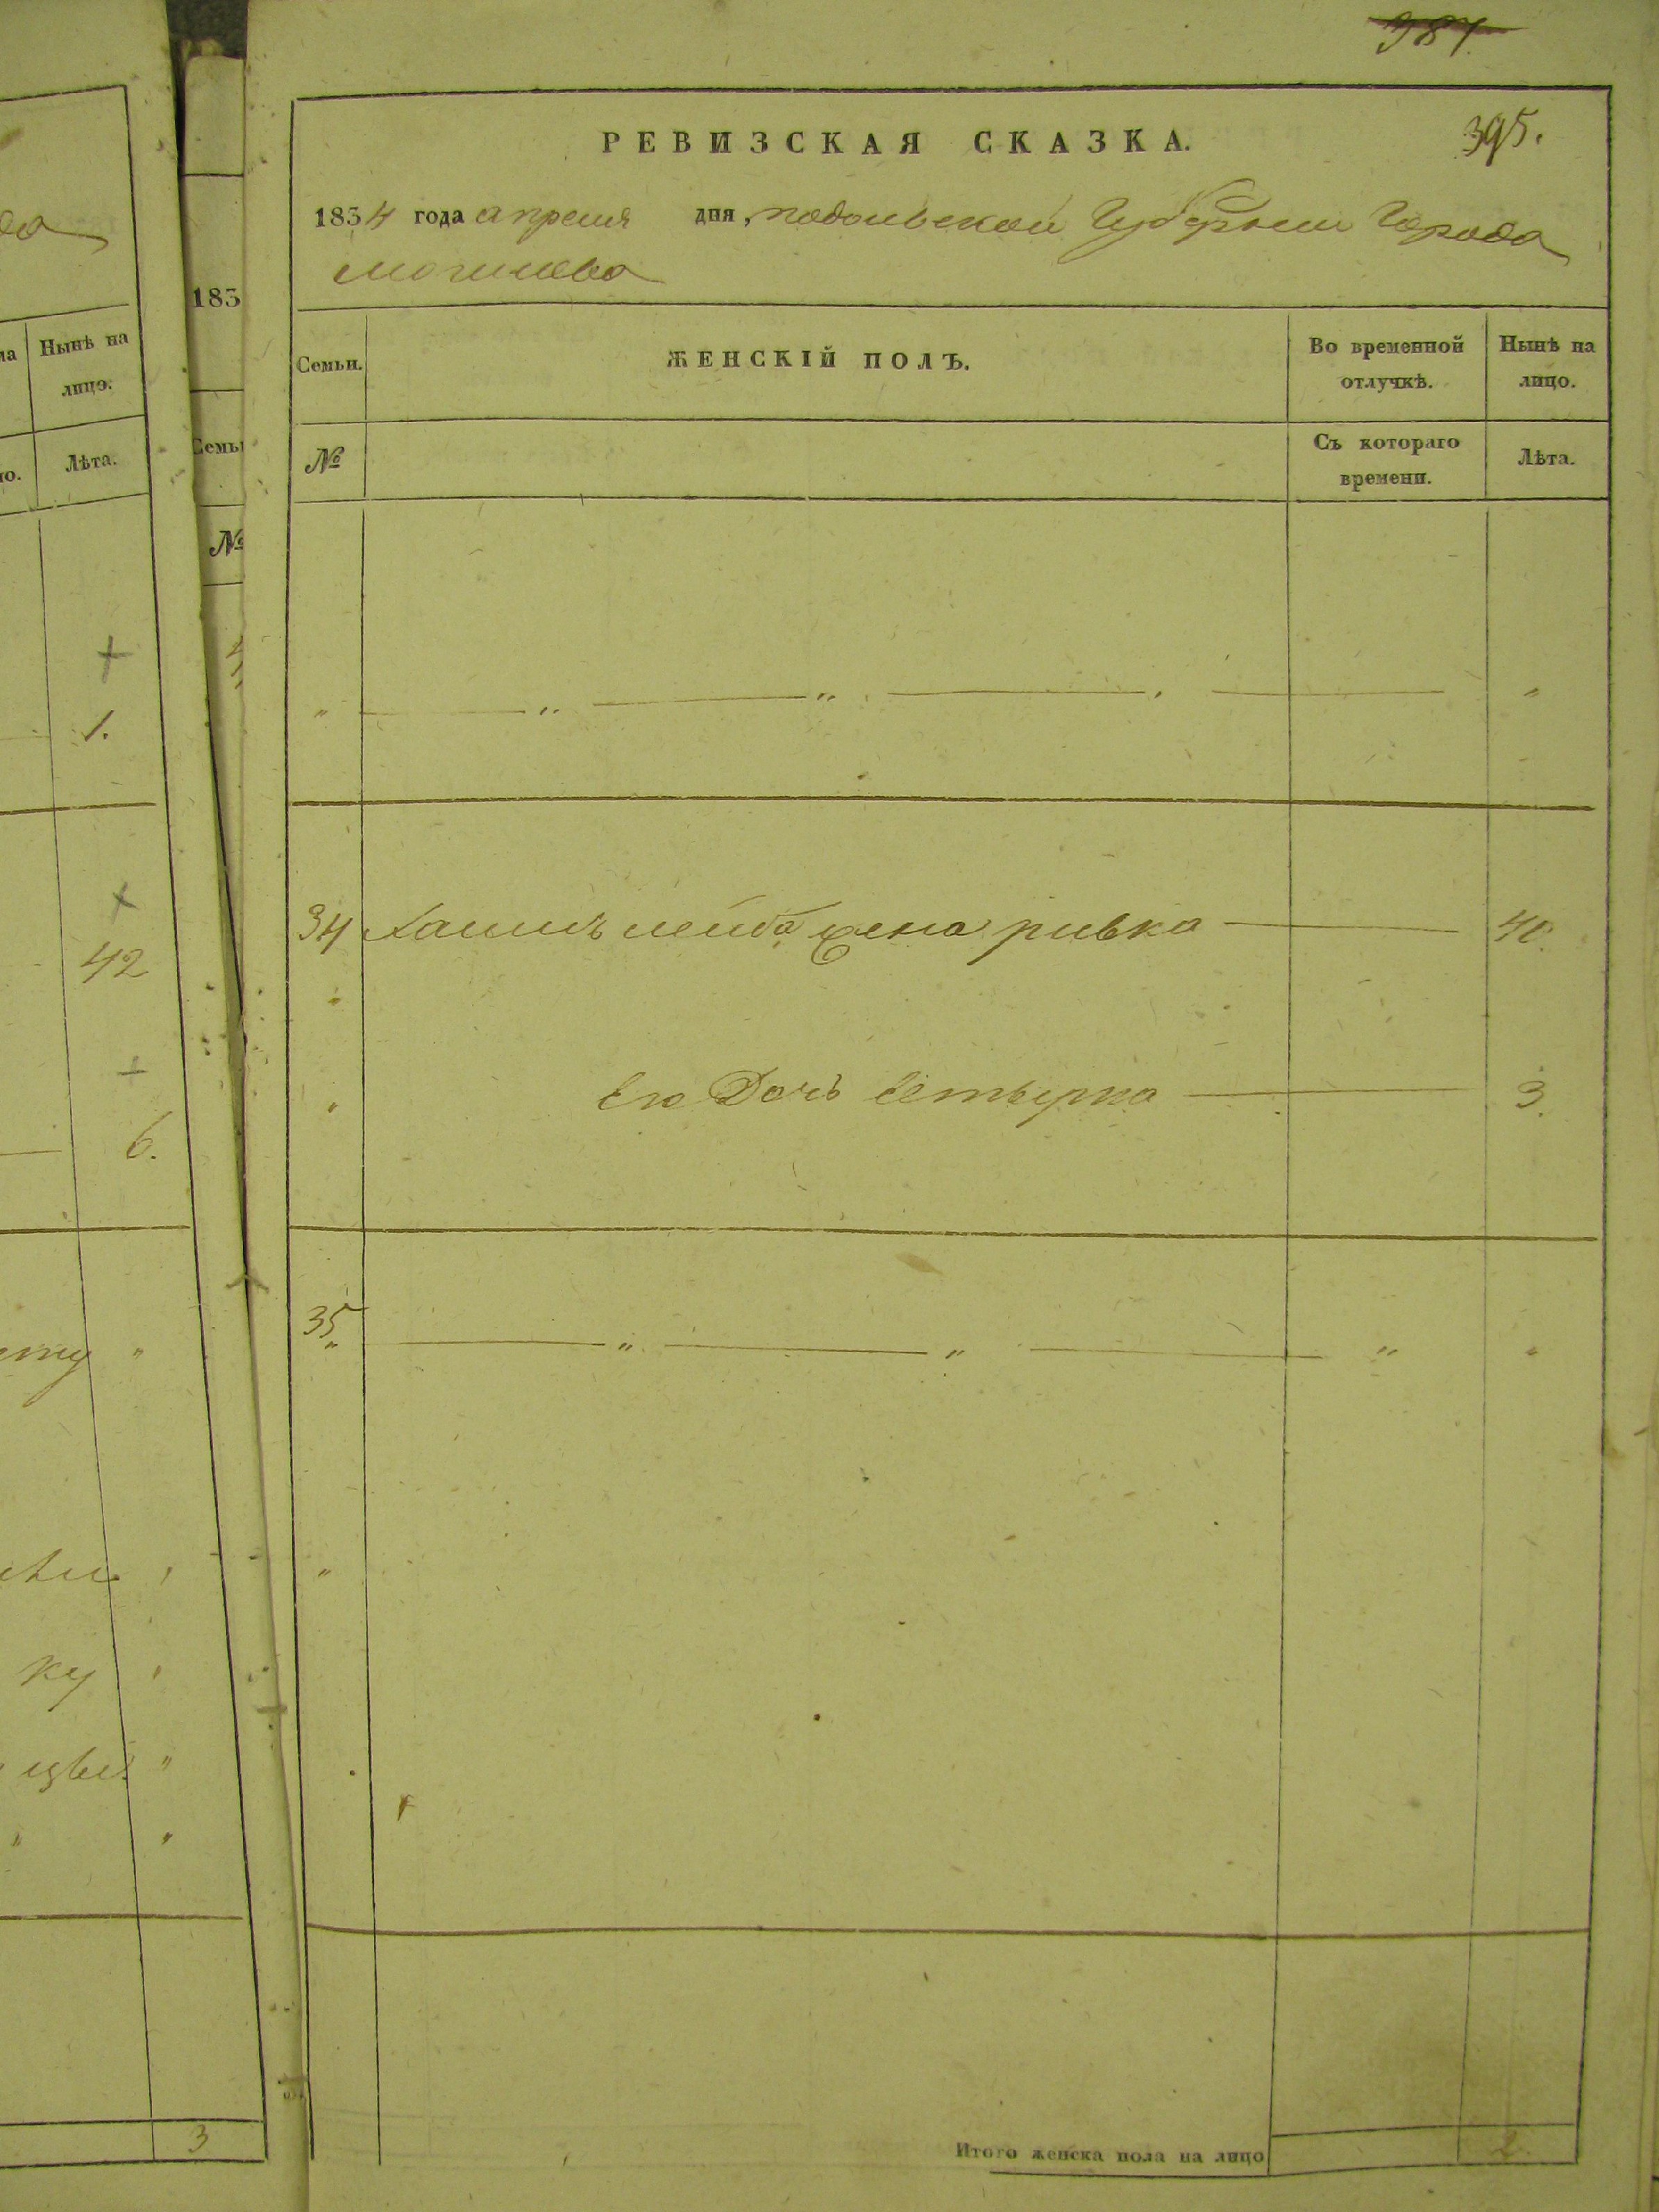 387
РЕВИЗСКАЯ СКАЗКА.
395.
1834 года апреля дня, подольской Губернии Города
могилева
Семьи.
ЖЕНСКІЙ ПОЛЪ.
Во временной отлучкѣ.
Нынѣ на лицо.
№
Съ котораго времени.
Лѣта.
34 Хаимъ лейба жена ривка 40.
Его Дочь Естырка 3.
35
Итого женска пола на лицо 2
Нынѣ на
лицо.
Лѣта.
1.
42
6.
ку
3
183
Семьи
№